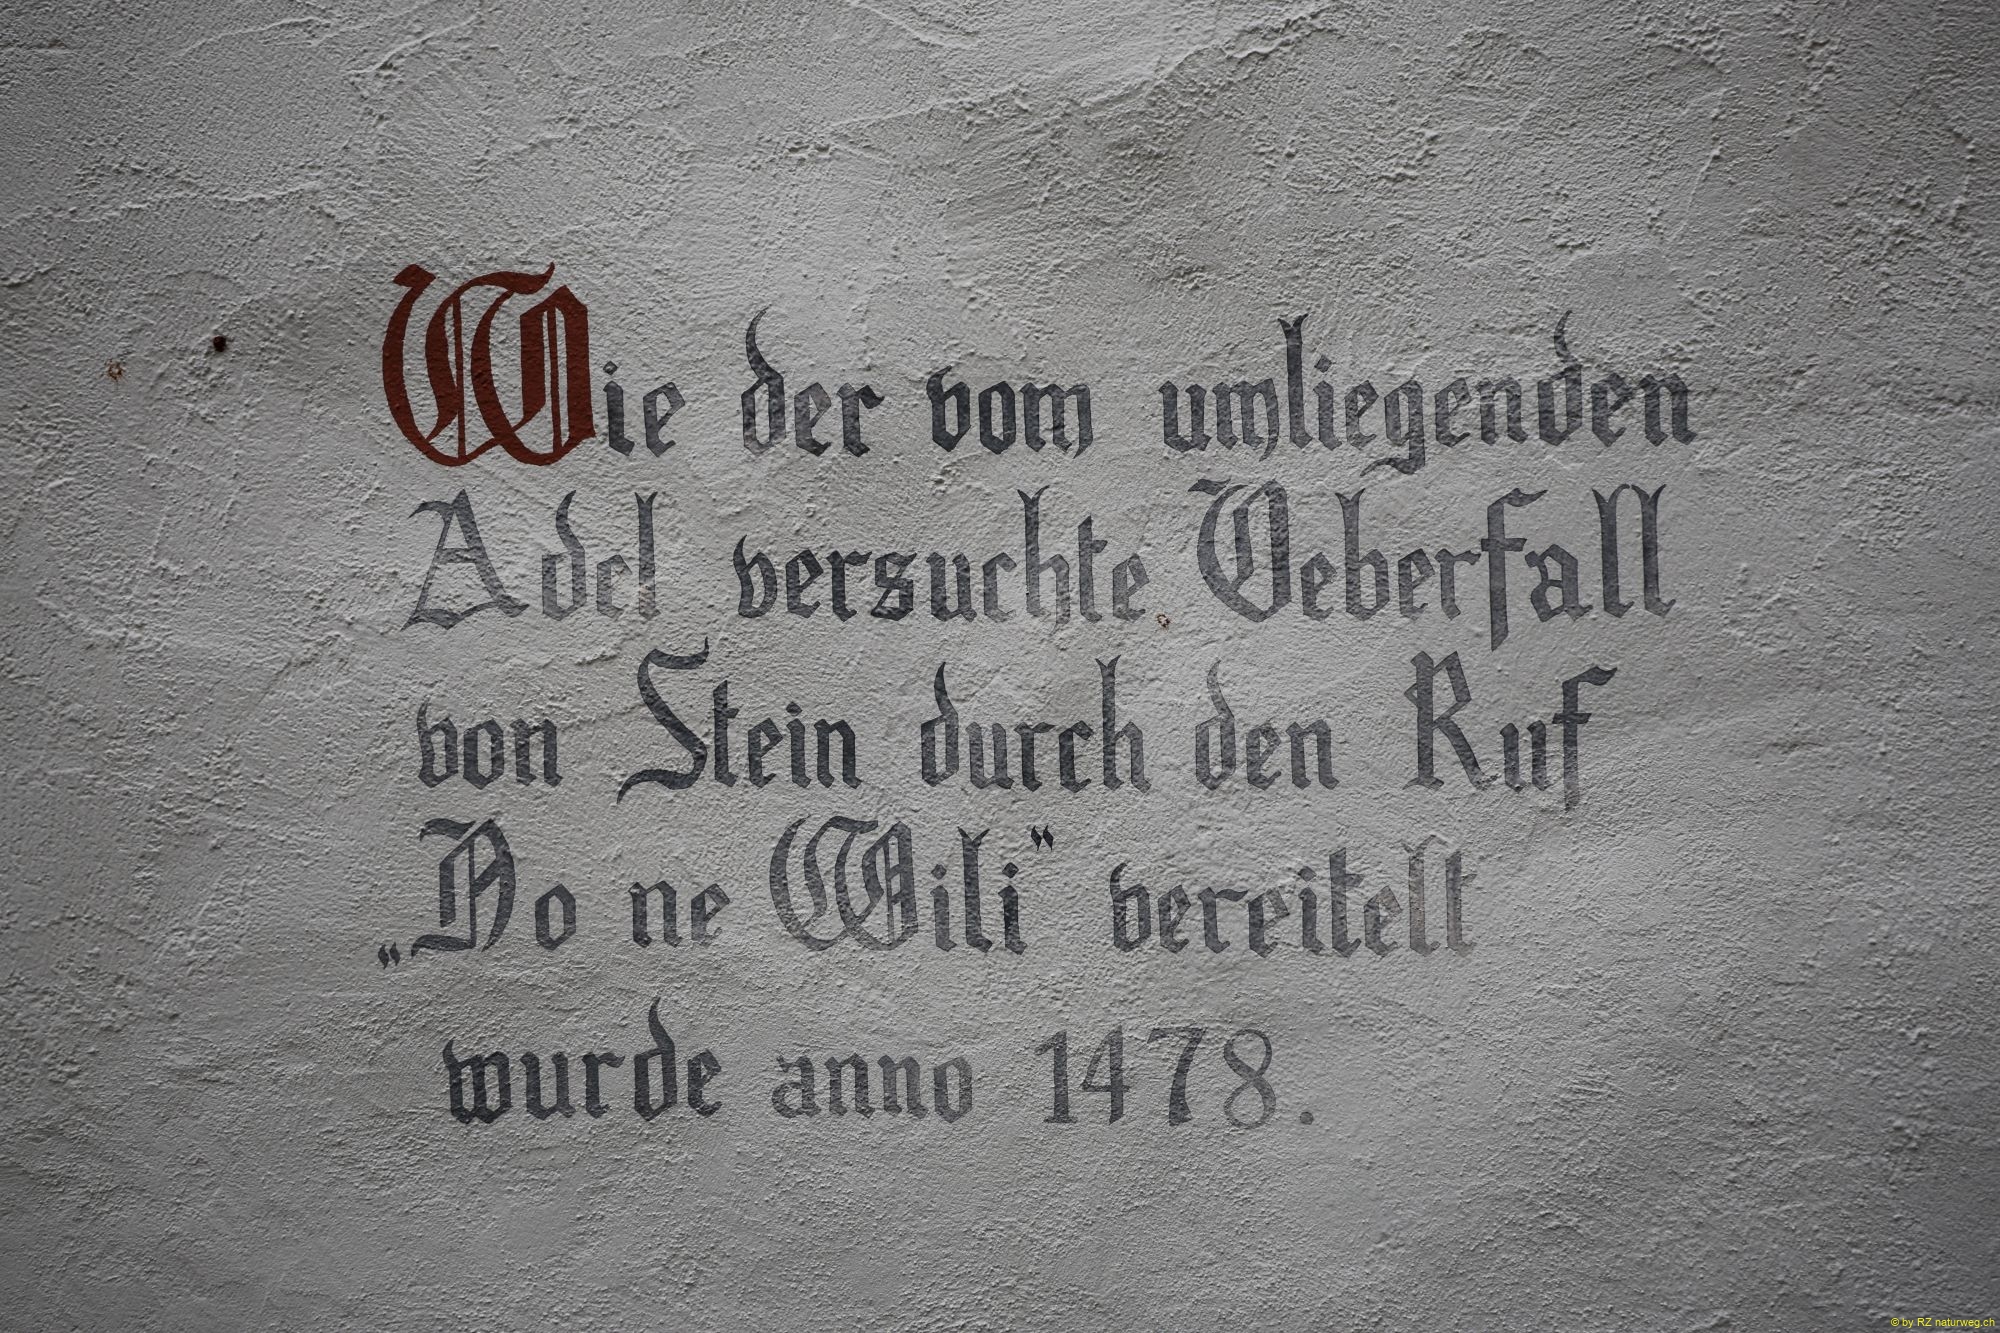 Wie der vom umliegenden
Adel versuchte Ueberfall
von Stein durch den Ruf
„No ne Wili“ vereitelt
wurde anno 1478.
© by RZ naturweg.ch